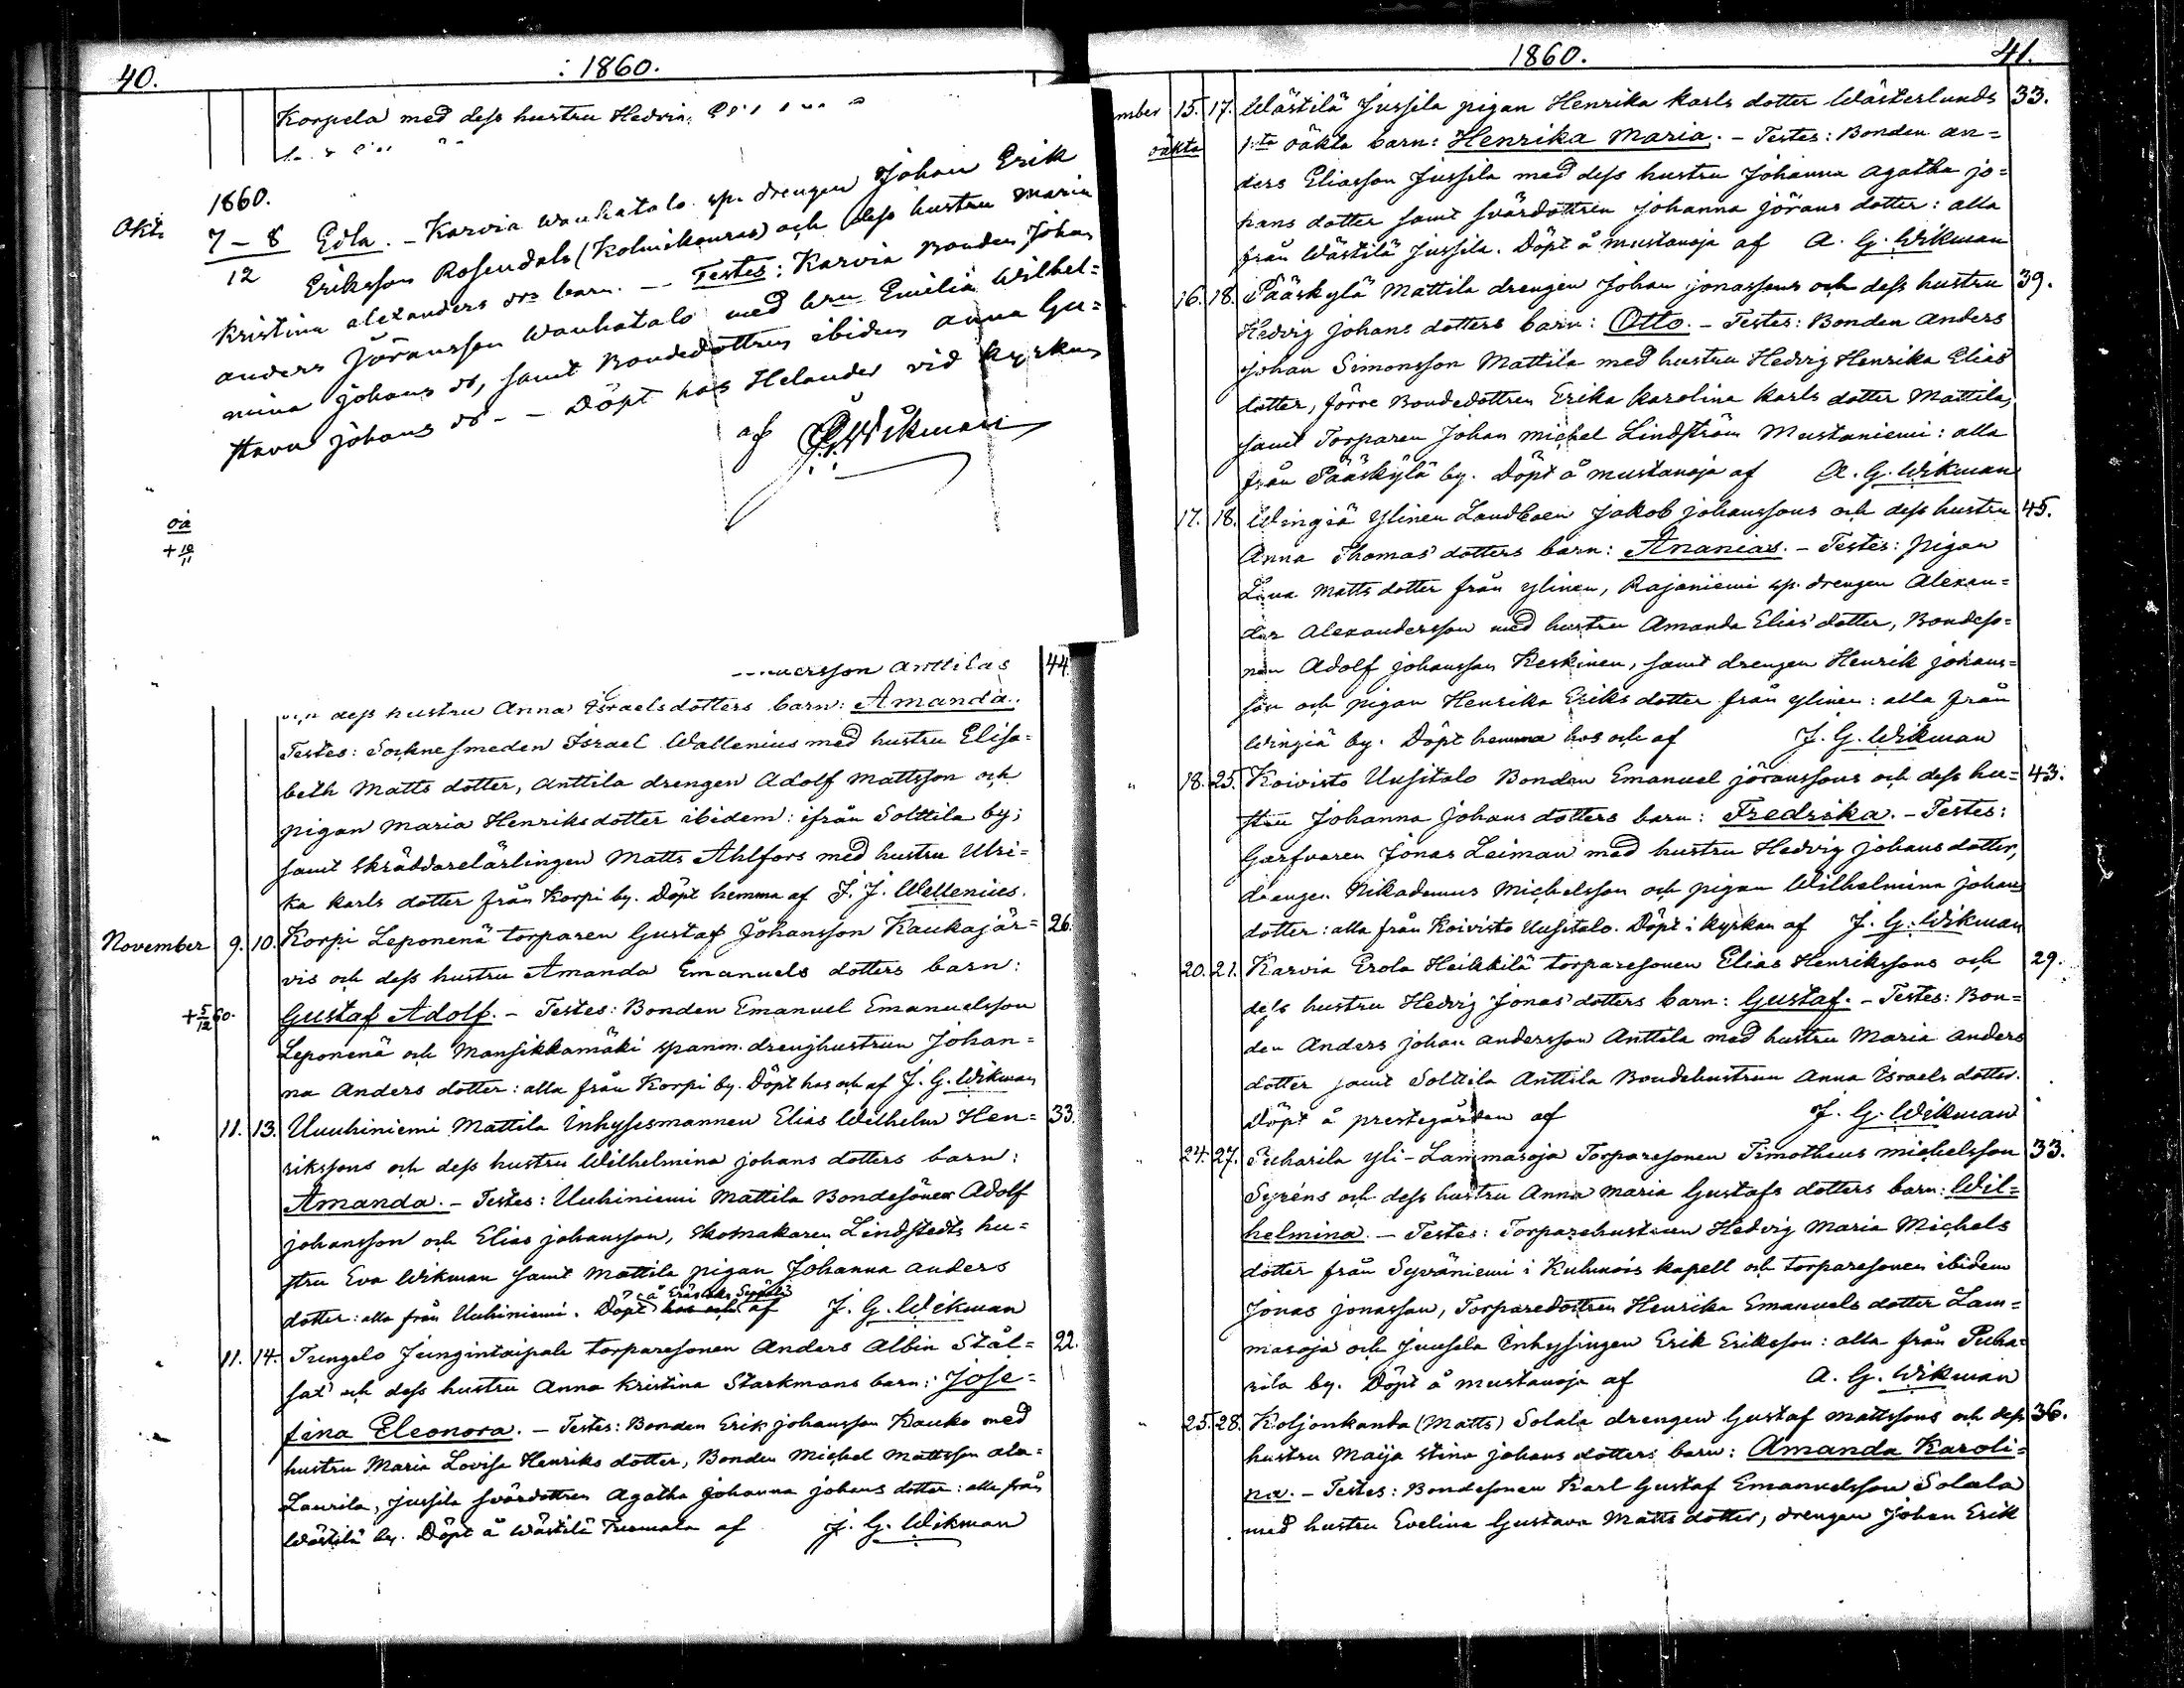 40.
: 1860.
Korpela med dess hustru Hedvi
1860.
Okt. 7-8 Edla. - Karvia Wauhatalo sp. drengen Johan Erik
12 Eriksson Rosendals (Kolmikouras) och dess hustru Maria
Kristina Alexanders drs barn. - Testes: Karvia Bonden Johan
Anders Jöransson Wauhatalo med hru Emilia Wilhel=
mina Johans dr, samt Bondedottren ibidem Anna Gu=
stava Johans dr - Döpt hos Helander vid kyrkan
af J. G. Wikman
oä
+ 10/11
ersson Anttilas 44.
dess hustru Anna Israels dotters barn: Amanda.
Testes: Socknesmeden Israel Wallenius med hustru Elisa=
beth Matts dotter, Anttila drengen Adolf Mattsson och
pigan Maria Henriks dotter ibidem: ifrån Solttila by;
samt skräddarelärlingen Matts Ahlfors med hustru Ulri=
ka Karls dotter från Korpi by. Döpt hemma af J. J. Wellenius.
November 9. 10. Korpi Leponenä torparen Gustaf Johansson Kaukajär= 26.
vis och dess hustru Amanda Emanuels dotters barn:
+ 5/12 60. Gustaf Adolf. - Testes: Bonden Emanuel Emanuelsson
Leponenä och Mansikkamäki spanm. drenghustrun Johan=
na Anders dotter: alla från Korpi by. Döpt hos och af J. G. Wikman
" 11. 13. Uuuhiniemi Mattila Inhysesmannen Elias Wilhelm Hen= 33.
rikssons och dess hustru Wilhelmina Johans dotters barn:
Amanda. - Testes: Uuhiniemi Mattila Bondesöner Adolf
Johansson och Elias Johansson, Skomakaren Lindstedts hu=
stru Eva Wikman samt Mattila pigan Johanna Anders
dotter: alla från Uuhiniemi. Döpt hos och af J. G. Wikman
" 11. 14. Tungelo Jungintaipale torparesonen Anders Albin Stål= 22.
sat och dess hustru Anna Kristina Starkmans barn: Jose=
fina Eleonora. - Testes: Bonden Erik Johansson Kauko med
hustru Maria Lovisa Henriks dotter, Bonden Michel Mattsson Ala=
Laurila, Jussila svärdottren Agatha Johanna Johans dotter: alla från
Wästilä by. Döpt å Wästilä Tuomala af J. G. Wikman
1860.
41.
mber 15. 17. Wästilä Jussila pigan Henrika Karls dotter Wästerlunds 33.
oäkta 1sta oäkta barn: Henrika Maria. - Testes: Bonden An=
ders Eliasson Jussila med dess hustru Johanna Agatha Jo=
hans dotter samt svärdottren Johanna Jörans dotter: alla
från Wästilä Jussila. Döpt å Mustanoja af A. G. Wikman
16. 18. Pääskylä Mattila drengen Johan Jonassons och dess hustru 39.
Hedvig Johans dotters barn: Otto. - Testes: Bonden Anders
Johan Simonsson Mattila med hustru Hedvig Henrika Elias
dotter, förre Bondedottren Erika Karolina Karls dotter Mattila,
samt Torparen Johan Michel Lindström Mustaniemi: alla
från Pääskylä by. Döpt å Mustanoja af A. G. Wikman
17. 18. Wingiä Ylinen Landboen Jakob Johanssons och dess hustru 45.
Anna Thomas dotters barn: Ananias. - Testes: Pigan
Lena Matts dotter från Ylinen, Rajaniemi sp. drengen Alexan=
der Alexandersson med hustru Amanda Elias dotter, Bondeso=
nen Adolf Johansson Keskinen, samt drengen Henrik Johans=
son och pigan Henrika Eriks dotter från Ylinen: alla från
Wingiä by. Döpt hemma hos och af J. G. Wikman
" 18. 25. Koivisto Uusitalo Bonden Emanuel Jöranssons och dess hu= 43.
stru Johanna Johans dotters barn: Fredrika. - Testes:
Garfvaren Jonas Leiman med hustru Hedvig Johans dotter,
drengen Nikademus Michelsson och pigan Wilhelmina Johans
dotter: alla från Koivisto Uusitalo. Döpt i kyrkan af J. G. Wikman
20. 21. Karvia Erola Heikkilä torparesonen Elias Henrikssons och 29.
dess hustru Hedvig Jonas dotters barn: Gustaf. - Testes: Bon=
den Anders Johan Andersson Anttila med hustru Maria Anders
dotter samt Solttila Anttila Bondehustrun Anna Israels dotter.
Döpt å prestegården af J. G. Wikman
" 24. 27. Puharila Yli-Lammasoja Torparesonen Timotheus Michelsson 33.
Syréns och dess hustru Anna Maria Gustafs dotters barn: Wil=
helmina. - Testes: Torparehustrun Hedvig Maria Michels
dotter från Syväniemi i Kuhmois kapell och torparesonen ibidem
Jonas Jonasson, Torparedottren Henrika Emanuels dotter Lam=
masoja och Juusela Inhysingen Erik Eriksson: alla från Puha=
rila by. Döpt å Mustanoja af A. G. Wikman
" 25. 28. Koljonkanda (Matts) Solala drengen Gustaf Mattssons och dess 36.
hustru Maija Stina Johans dotters barn: Amanda Karoli=
na. - Testes: Bondesonen Karl Gustaf Emanuelsson Solala
med hustru Evelina Gustava Matts dotter, drengen Johan Erik